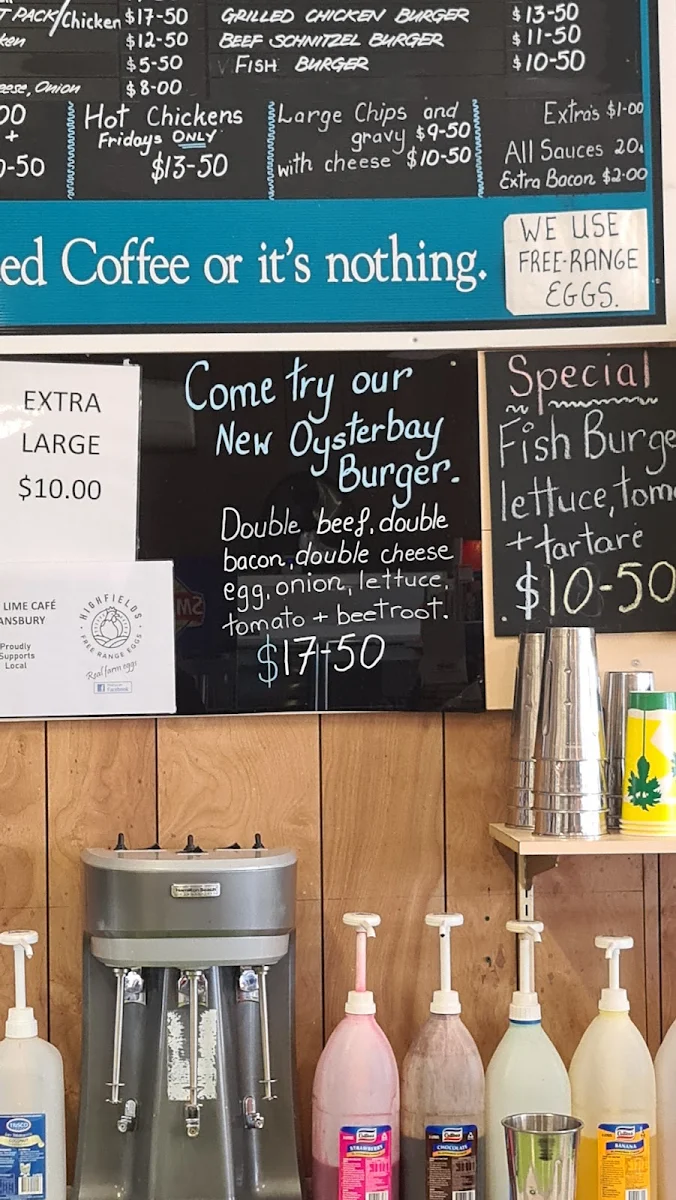 T PACK/Chicken $17-50
ken $12-50
$5-50
eese, Onion $8-00
GRILLED CHICKEN BURGER $13-50
BEEF SCHNITZEL BURGER $11-50
FISH BURGER $10-50
00
+
0-50
Hot Chickens
Fridays ONLY
$13-50
Large Chips and
gravy $9-50
with cheese $10-50
Extra's $1-00
All Sauces 20
Extra Bacon $2-00
ed Coffee or it's nothing.
WE USE
FREE-RANGE
EGGS.
EXTRA
LARGE
$10.00
LIME CAFÉ
ANSBURY
Proudly
Supports
Local
HIGHFIELDS
FREE RANGE EGGS
Real farm eggs
Facebook
Come try our
New Oysterbay
Burger.
Double beef, double
bacon, double cheese
egg, onion, lettuce,
tomato + beetroot.
$17-50
Special
Fish Burge
lettuce, tom
+ tartare
$10-50
Hamilton Beach
TRISCO
STRAWBERRY
CHOCOLATE
BANANA